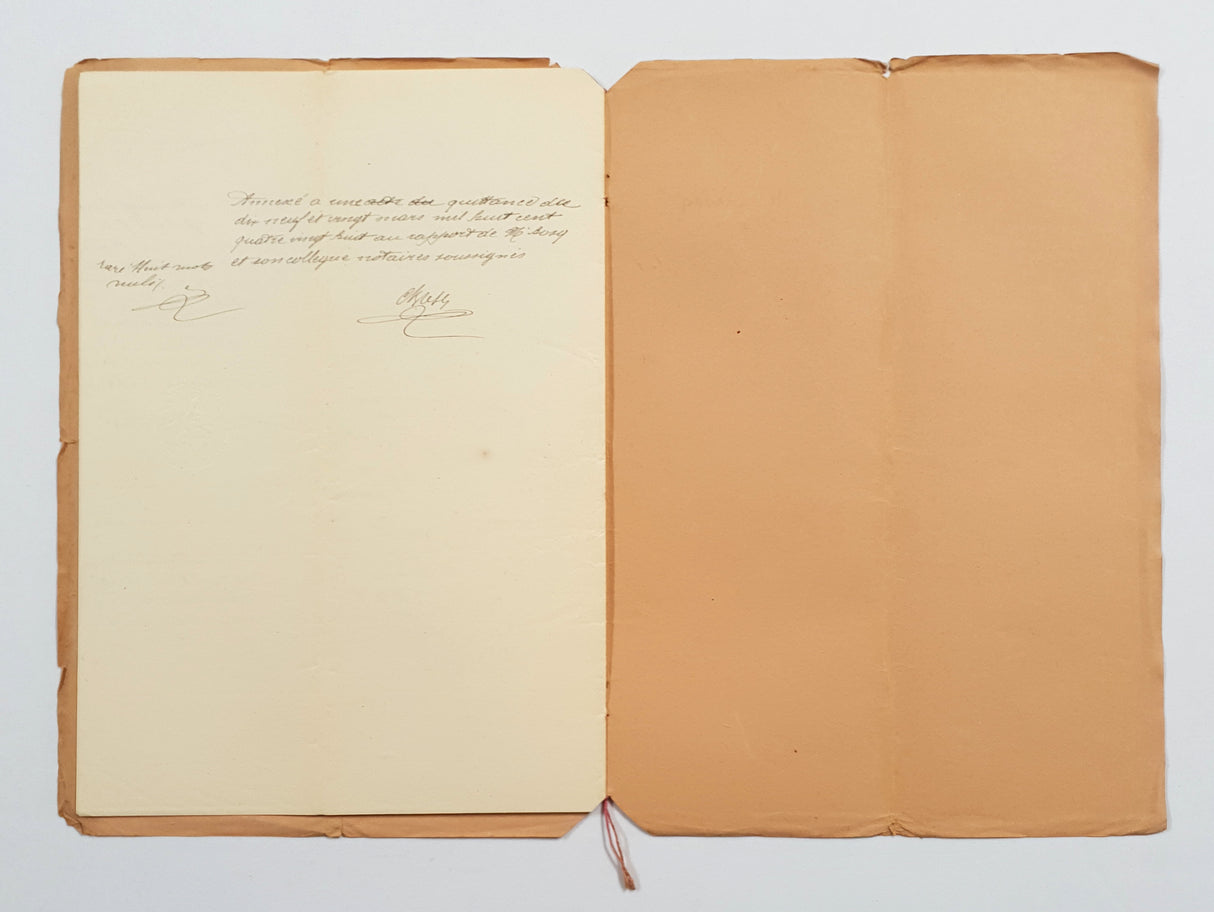 Annexé a une acte du quittance du
dix neuf et vingt mars mil huit cent
quatre vingt huit au rapport de Me
et son collegue notaires soussignés
rayé Huit mots
nuls